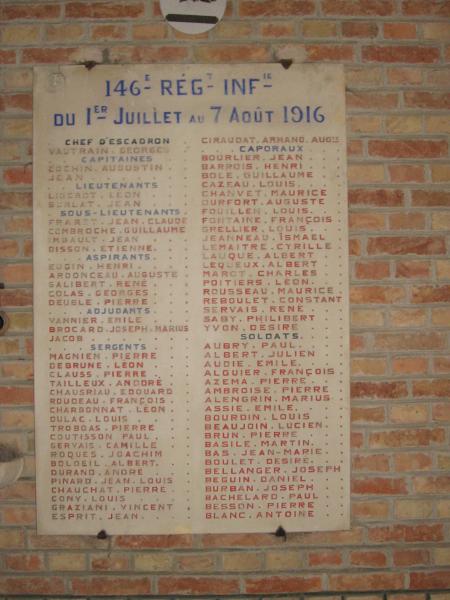 146E RÉGT INFIE
DU 1ER JUILLET AU 7 AOÛT 1916
CHEF D'ESCADRON
VAUTRAIN. GEORGES
CAPITAINES
COCHIN. AUGUSTIN
JEAN
LIEUTENANTS
LIGEROT. LÉON
BURLAT. JEAN
SOUS-LIEUTENANTS
FRARET. JEAN. CLAUDE
COMBROCHE. GUILLAUME
IMBAULT. JEAN
DISSON. ETIENNE
ASPIRANTS
EUGIN. HENRI
ARDONCEAU. AUGUSTE
SALIBERT. RENÉ
COLAS. GEORGES
DEUBLE. PIERRE
ADJUDANTS
VANNIER. EMILE
BROCARD. JOSEPH. MARIUS
JACOB
SERGENTS
MAGNIEN. PIERRE
DEBRUNE. LÉON
CLAUSS. PIERRE
TAILLEUX. ANDRÉ
CHAUSRIAU. EDOUARD
ROUDEAU. FRANÇOIS
CHARDONNAT. LÉON
DULAC. LOUIS
TROBOAS. PIERRE
COUTISSON. PAUL
GERVAIS. CAMILLE
ROQUES. JOACHIM
BOLOEIL. ALBERT
DURAND. ANDRÉ
PINARD. JEAN. LOUIS
CHAUCHAT. PIERRE
CONY. LOUIS
GRAZIANI. VINCENT
ESPRIT. JEAN
CIRAUDAT. ARMAND. AUGTE
CAPORAUX
BOURLIER. JEAN
BARROIS. HENRI
BOLE. GUILLAUME
CAZEAU. LOUIS
CHANVET. MAURICE
DURFORT. AUGUSTE
FOUILLEN. LOUIS
FONTAINE. FRANÇOIS
GRELLIER. LOUIS
JEANNEAU. ISMAËL
LEMAITRE. CYRILLE
LAUQUE. ALBERT
LEQLEUX. ALBERT
MAROT. CHARLES
POITIERS. LÉON
ROUSSEAU. MAURICE
REBOULET. CONSTANT
SERVAIS. RENÉ
SABY. PHILIBERT
YVON. DESIRE
SOLDATS
AUBRY. PAUL
ALBERT. JULIEN
AUDIE. EMILE
ALGUIER. FRANÇOIS
AZEMA. PIERRE
AMBROISE. PIERRE
ALENGRIN. MARIUS
ASSIE. EMILE
BOURDIN. LOUIS
BEAUJOIN. LUCIEN
BRUN. PIERRE
BASILE. MARTIN
BAS. JEAN-MARIE
BOULET. DESIRE
BELLANGER. JOSEPH
BEGUIN. DANIEL
BURBAN. JOSEPH
BACHELARD. PAUL
BESSON. PIERRE
BLANC. ANTOINE